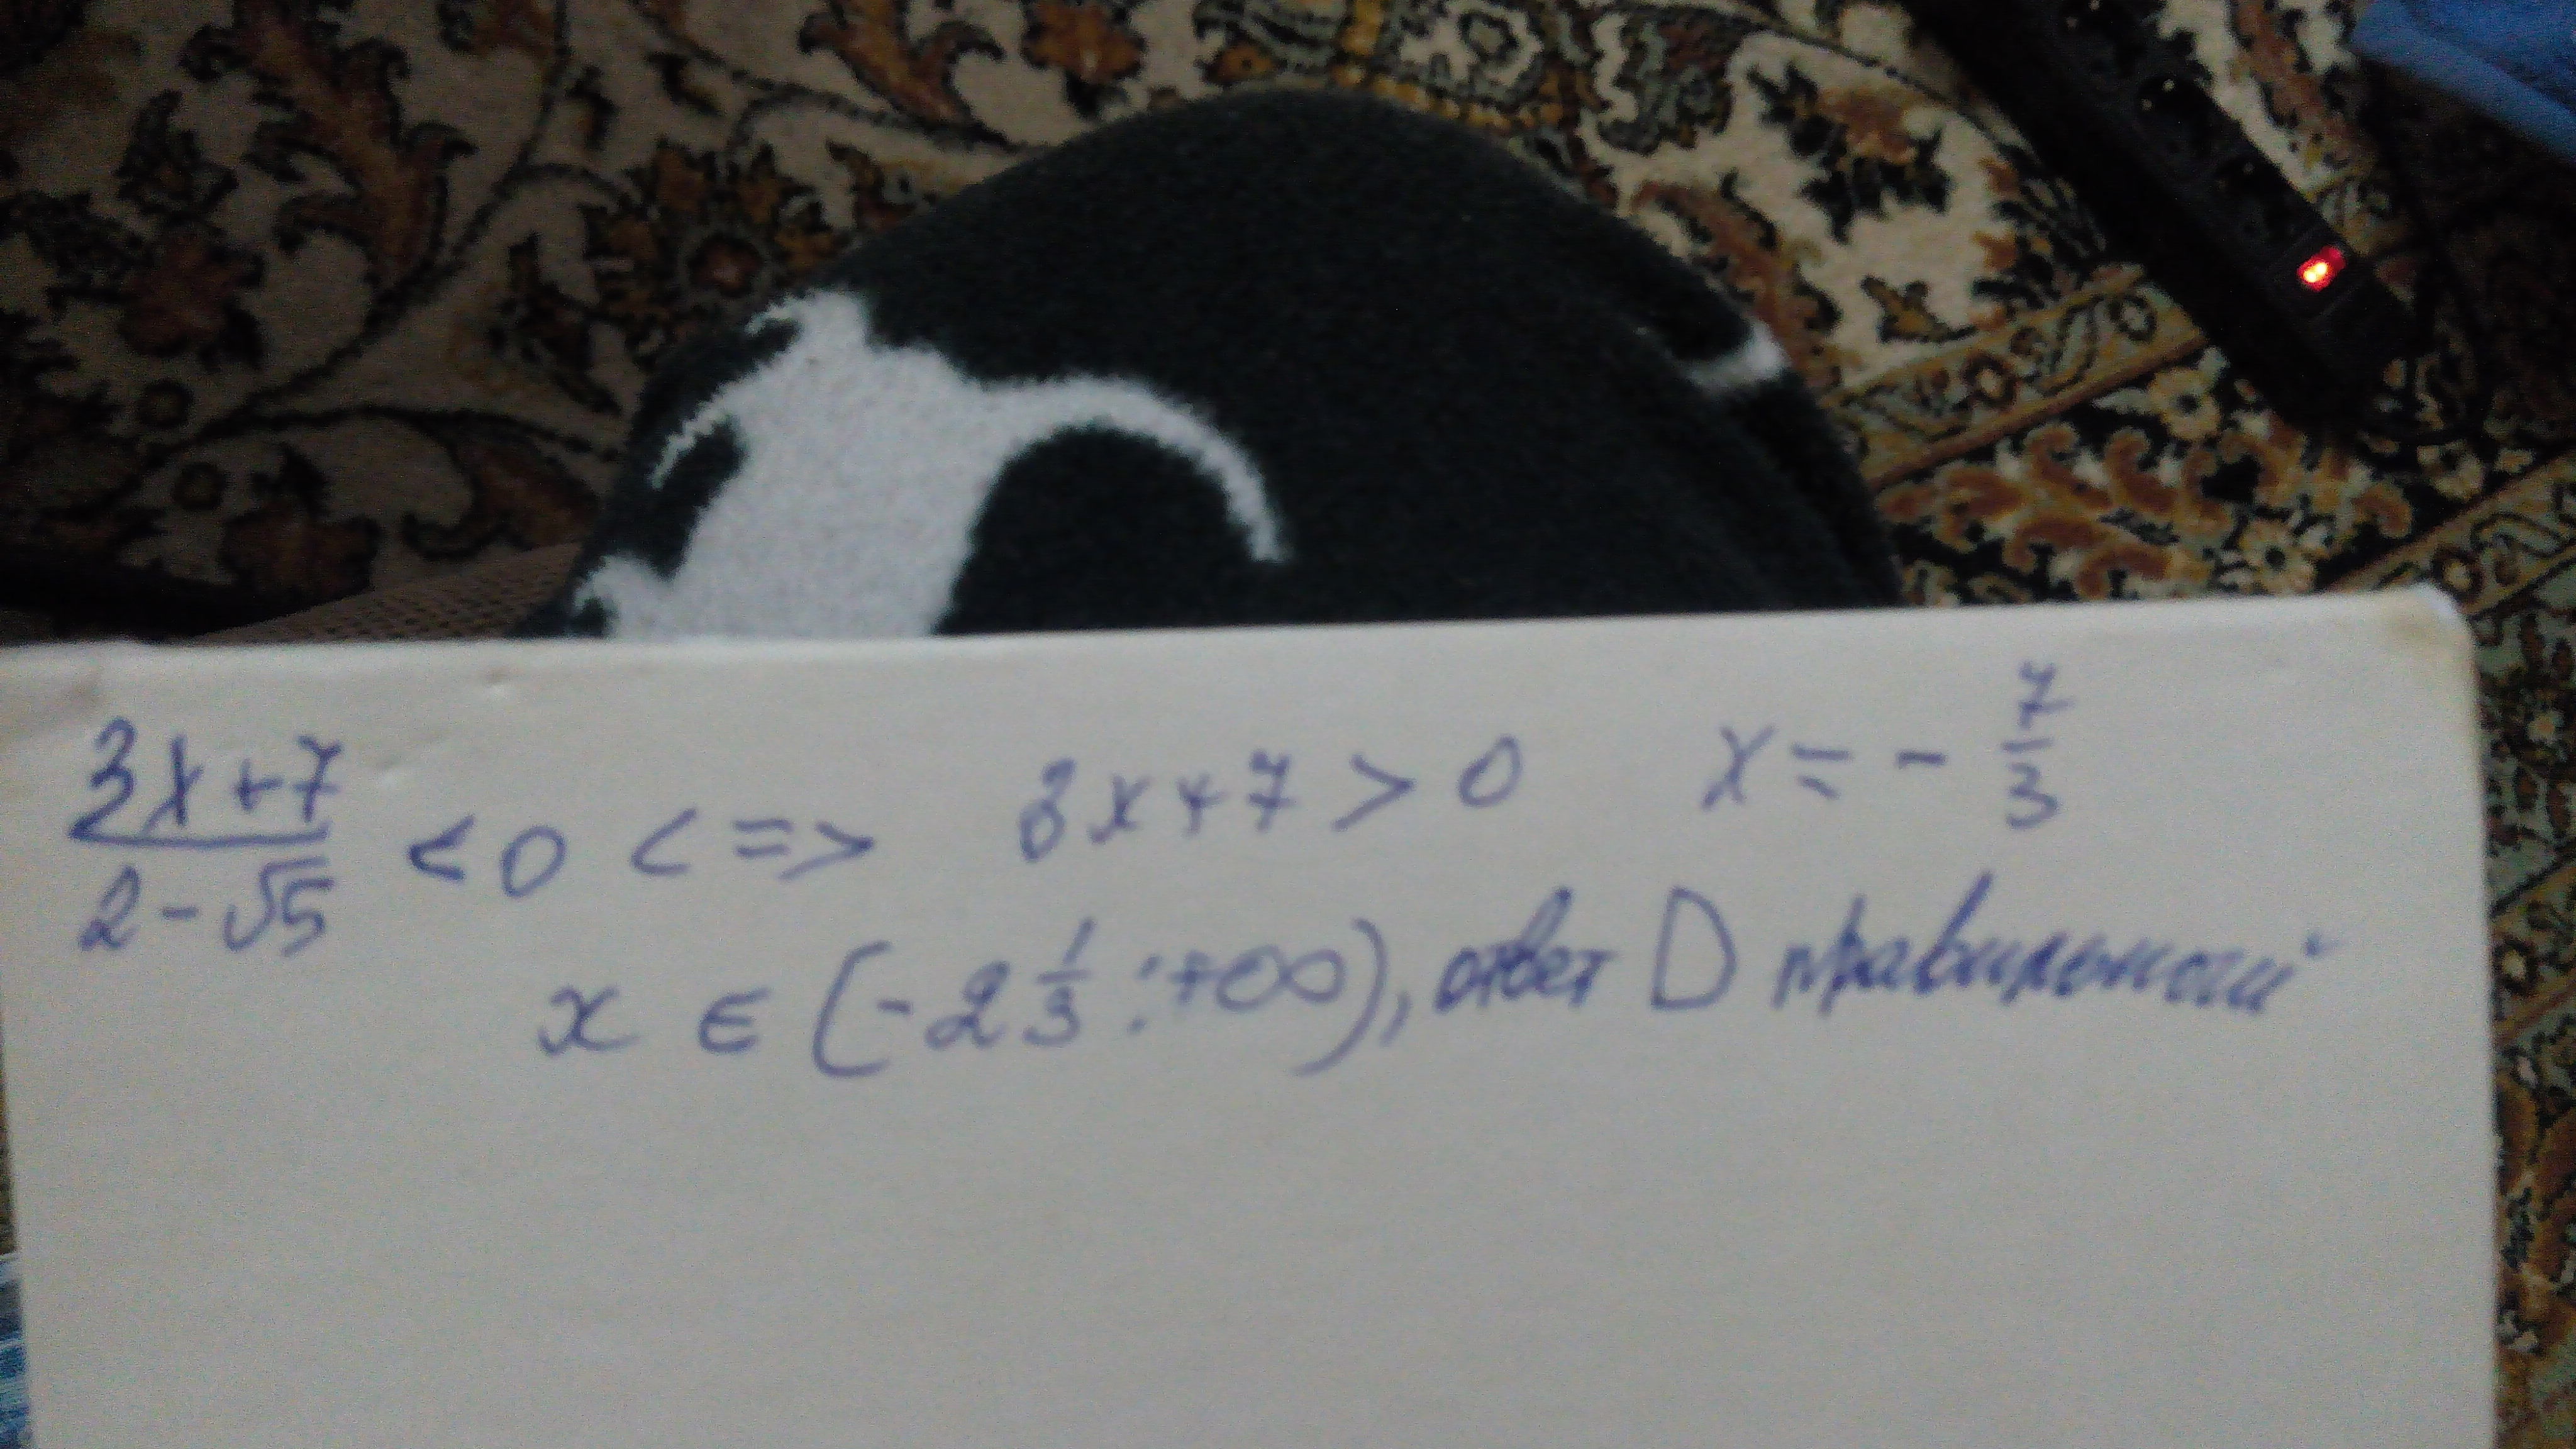 (3x+7)/(2-√5) <0 <=> 3x+7>0 x=-7/3
x ∈ (-2 1/3 ;+∞), ответ D правильный